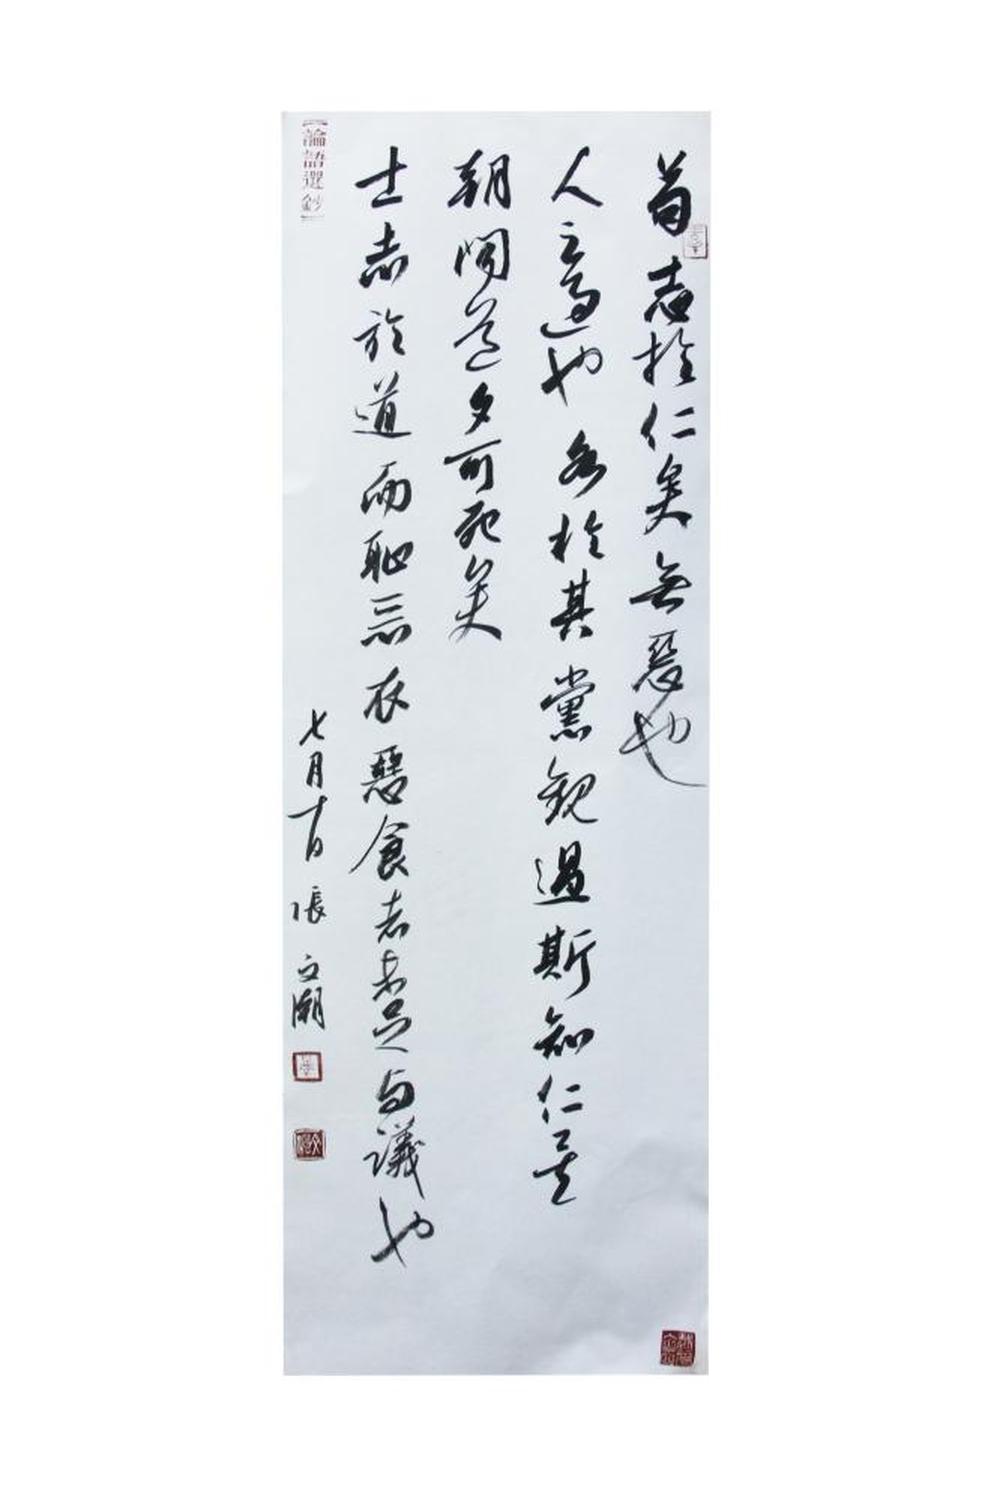 苟志於仁矣無惡也
人之過也各於其黨觀過斯知仁矣
朝聞道夕可死矣
士志於道而恥惡衣惡食者未足與議也
七月十日張文潮
【論語選鈔】